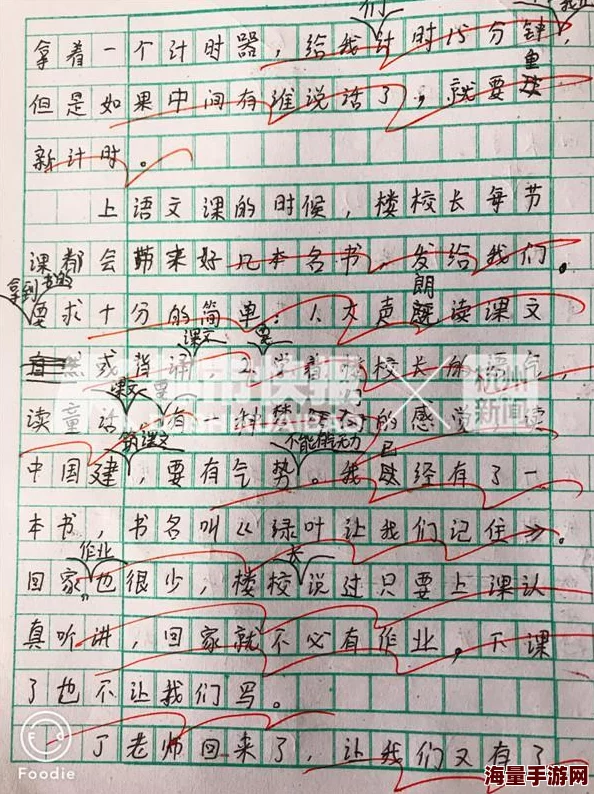 们
拿着一个计时器，给我计时15分钟，
重
但是如果中间有谁说话了，就要
新计时。
上语文课的时候，楼校长每节
课都会带来好几本名书，发给我们。
拿到
朗
要求十分的简单：1.大声读课文
课文 要
或背诵 2.学着楼校长的语气，
课文 要
读童话 有一种 的感觉 读
不能有气无力 已
中国建，要有气势。我经有了一
本书，书名叫《绿叶让我们记住》。
作业 长
回家也很少，楼校说过只要上课认
真听讲，回家就不必有作业，下课
了也不让我们写。
丁老师回来了，让我们又有了
Foodie
杭州新闻
海量手游网